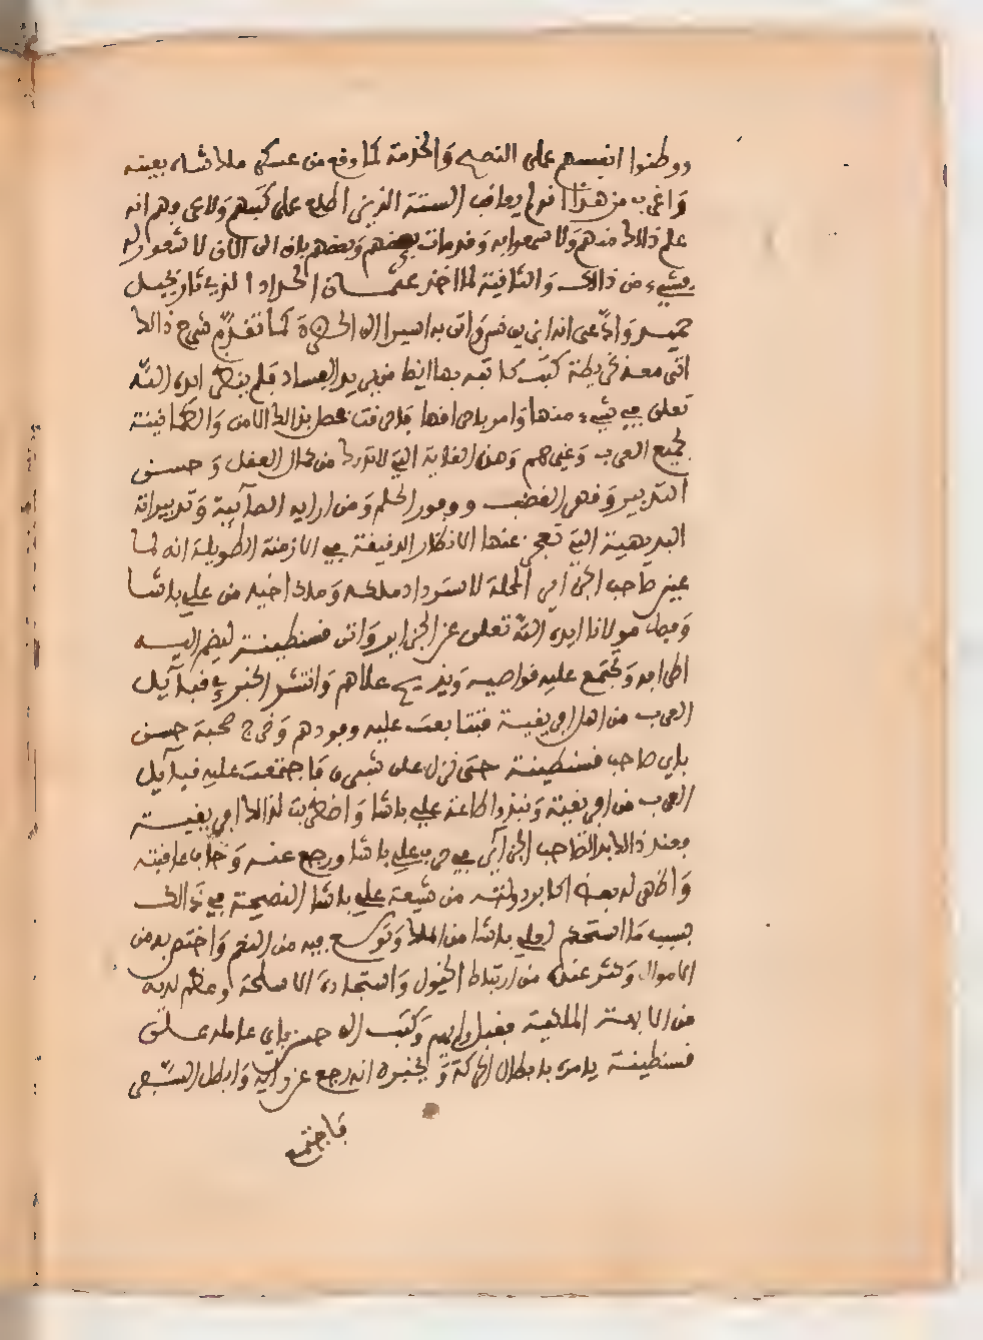 ووطنوا انفسهم على النصح والخدمة كما وقع من عسكر ملا شاه بعينه
واغرب من هذا انه لم يعاقب الستة الذين اطلع على كتبهم ولا عرفهم انه
علم ذالك منهم ولا سمعوا به وقد مات بعضهم وبعضهم باق الى الان لا شعور له
بشيء من ذالك والثانية لما اخذ عثمان الحداد الذي ثار بجبل
وادّعى انه ابن يونس واتى به اسيرا الى الحضرة كما تقدّم شرح ذالك
اتى معه بخريطة كتب كاتبه بها ايضا من يريد الفساد فلم ينظر ايده الله
تعلى في شيء منها وامر باحراقها فاحرقت فحصل بذالك الامن والطمانينة
لجميع العرب وغيرهم وهذه الغاية التي لا تدرك من كمال العقل وحسن
التدبير وقهر الغضب ووفور الحلم ومن ارايه الصآئبة وتدبيراته
البديهية التي تعجز عنها الانظار الدقيقة في الازمنة الطويلة انه لما
عين صاحب الجزائر المحلة لاسترداد ملكه وملك اخيه من علي باشا
وفصل مولانا ايده الله تعلى عن الجزاير واتى قسنطينة ليضم اليه
اطرافه وتجتمع عليه قواصيه وانتشر الخبر في قبآيل
العرب من اهل افريقية فتتابعت عليه وفودهم وخرج صحبة حسن
باي صاحب قسنطينة حتى نزل على فاجتمعت عليه قبآيل
العرب من افريقية ونبذوا طاعة علي باشا واضطربت لذالك افريقية
فعند ذالك بدا لصاحب الجزآئر في حرب علي باشا ورجع عنه وخاف عاقبته
واظهر له بعض اكابر دولته من شيعة علي باشا النصيحة في ذالك
بسبب ما استحكم لعلي باشا من الملك وتوسع فيه من النعم واختص به من
الاموال وكثر عنده من ارتباط الخيول واستجادة الاسلحة وعظم لديه
من الابهة الملكية فقبل رايهم وكتب الى حسن باي عامله على
قسنطينة يامره بابطال الحركة ويخبره انه رجع عن رايه وابطل السفر
فاجتمع